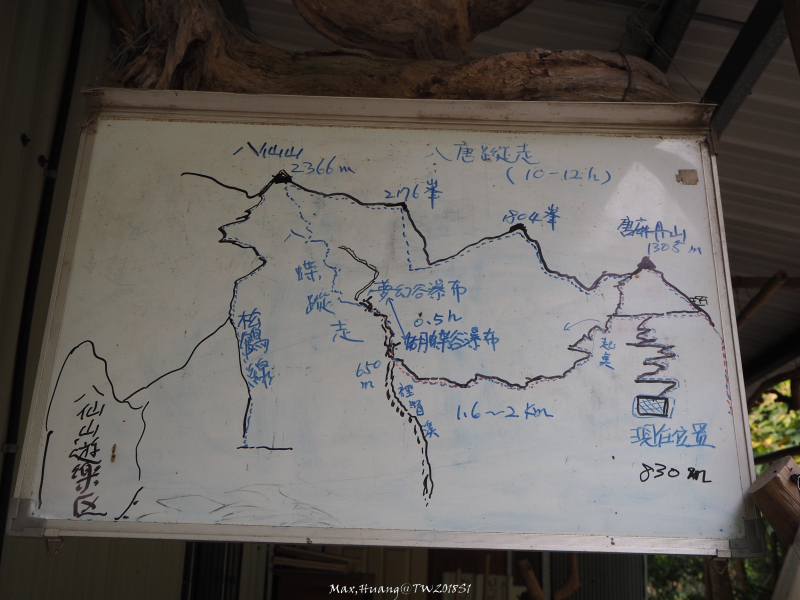 八仙山
2366m
八唐縱走
(10-12h)
2176峯
1804峯
唐麻丹山
1305m
蝶
縱
走
夢幻谷瀑布
0.5h
蝴蝶谷瀑布
松鶴線
650
m
裡冷溪
起點
1.6~2Km
現在位置
830m
八仙山遊樂區
Max,Huang@TW2018S1